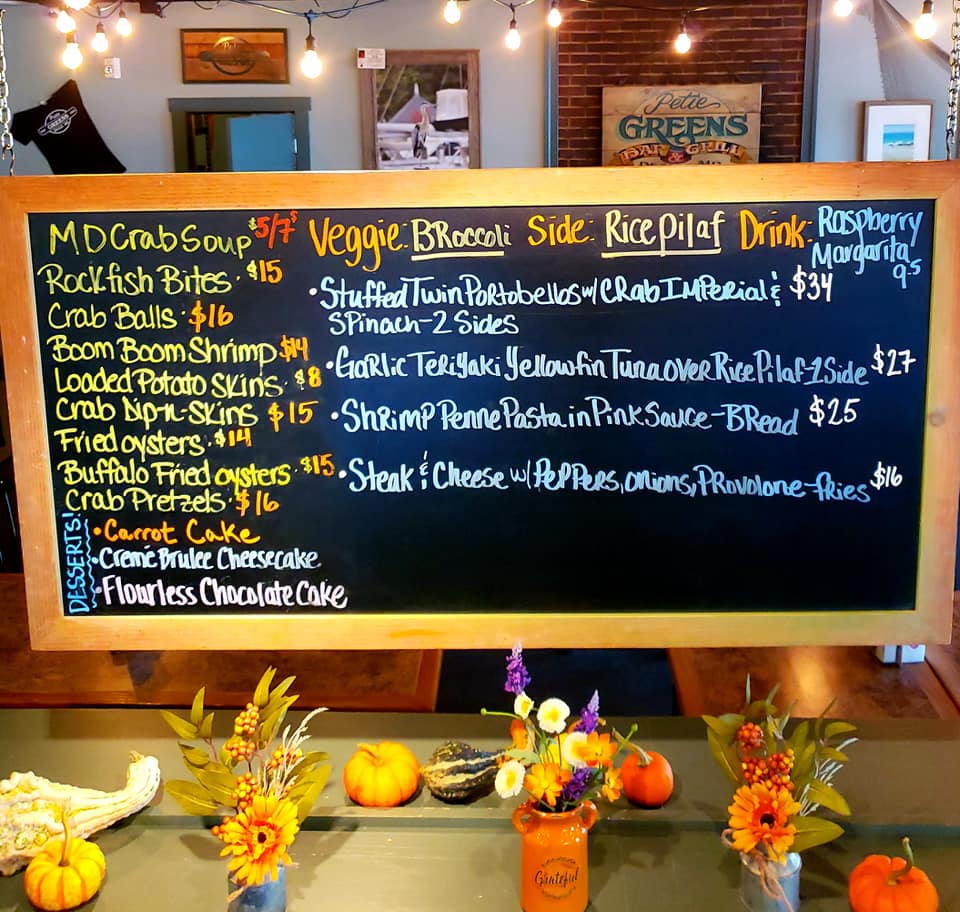 Petie
GREENS
BAR & GRILL
MD Crab Soup $5/7$
Rockfish Bites · $15
Crab Balls · $16
Boom Boom Shrimp $14
Loaded Potato Skins · $8
Crab Dip-n-Skins $15
Fried oysters · $14
Buffalo Fried oysters · $15
Crab Pretzels · $16
DESSERTS!
• Carrot Cake
• Cremé Brulee Cheesecake
• Flourless Chocolate Cake
Veggie: BRoccoli Side: Rice Pilaf Drink: Raspberry
Margarita
9.5
• Stuffed Twin Portobellos w/ CRab IMPerial & $34
SPinach - 2 Sides
• GaRlic TeRiyaki Yellowfin Tuna over Rice Pilaf - 1 Side $27
• ShRimP Penne Pasta in Pink Sauce - BRead $25
• Steak & Cheese w/ PePPers, onions, PRovolone - fries $16
Grateful